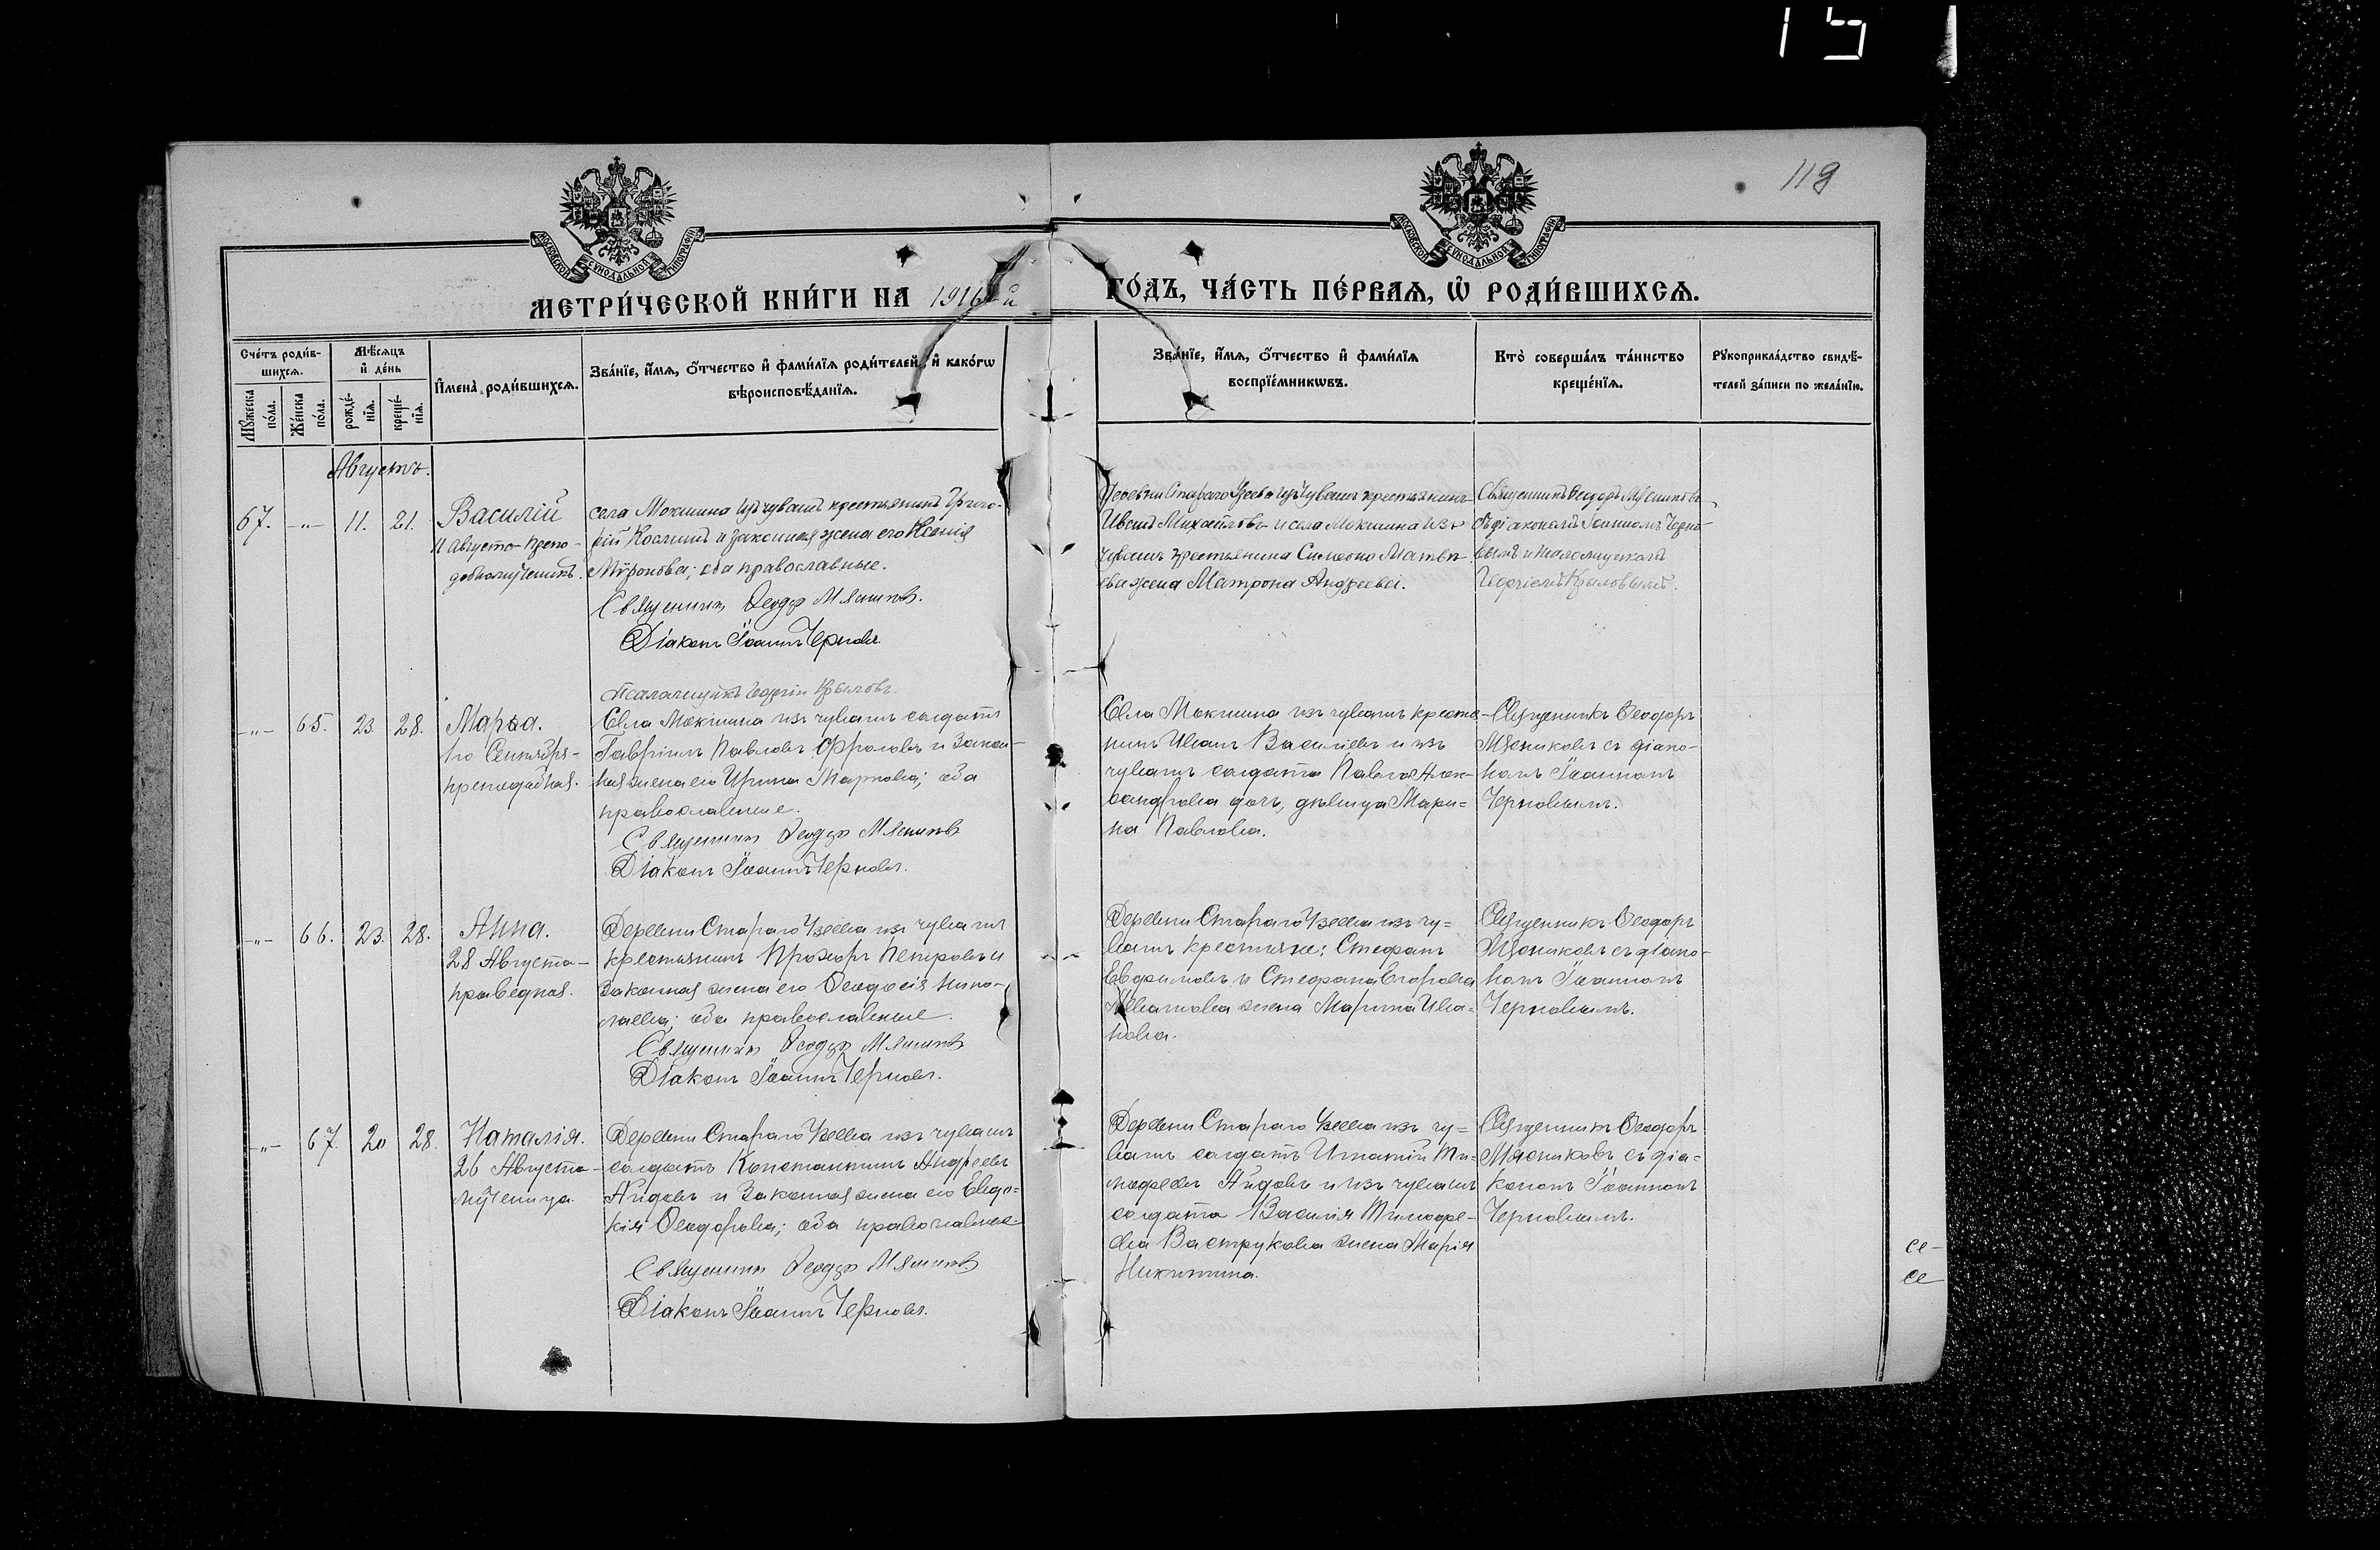 119
МОСКОВСКОЙ СѴНОДАЛЬНОЙ ТИПОГРАФІИ
МОСКОВСКОЙ СѴНОДАЛЬНОЙ ТИПОГРАФІИ
МЕТРИ́ЧЕСКОЙ КНИ́ГИ НА 1916-й
ГО́ДЪ, ЧА́СТЬ ПЕ́РВАѦ, Ѡ РОДИ́ВШИХСѦ.
Сче́тъ роди́в-
шихсѧ.
Мꙋжеска по́ла.
Же́нска по́ла.
Мѣ́сѧцъ
и҆ де́нь
рожде́-
нїѧ.
креще́-
нїѧ.
И҆мена̀ роди́вшихсѧ.
Зва́нїе, и҆́мѧ, ѻ҆́тчество и҆ фами́лїѧ роди́телей, и҆ како́гѡ
вѣроисповѣ́данїѧ.
Зва́нїе, и҆́мѧ, ѻ҆́тчество и҆ фами́лїѧ
воспрїе́мникѡвъ.
Кто̀ соверша́лъ та́инство
креще́нїѧ.
Рꙋкоприкла́дство свидѣ́-
телей за́писи по жела́нїю.
Августъ.
67. -„- 11. 21. Василій
11 Августа- препо-
добномученикъ.
села Мокшина изъ чувашъ крестьянинъ Григо-
рій Косминъ и законная жена его Ксенія
Мѵронова; оба православные.
Священникъ Ѳеодоръ Мясниковъ.
Діаконъ Іоаннъ Черновъ.
Псаломщикъ Георгій Крыловъ.
Деревни Стараго Узеева изъ чувашъ крестьянинъ
Иванъ Михайловъ и села Мокшина изъ
чувашъ крестьянина Симеона Матвѣ-
ева жена Матрона Андреева.
Священникъ Ѳеодоръ Мясниковъ
съ діакономъ Іоанномъ Черно-
вымъ и псаломщикомъ
Георгіемъ Крыловымъ.
-„- 65. 23. 28. Марѳа.
1го Сентября-
преподобная.
Села Мокшина изъ чувашъ солдатъ
Гавріилъ Павловъ Фроловъ и закон-
ная жена его Ирина Маркова; оба
православные.
Священникъ Ѳеодоръ Мясниковъ
Діаконъ Іоаннъ Черновъ.
Села Мокшина изъ чувашъ крестья-
нинъ Иванъ Василіевъ и изъ
чувашъ солдата Павла Алек-
сандрова дочь, дѣвица Мари-
на Павлова.
Священникъ Ѳеодоръ
Мясниковъ съ діако-
номъ Іоанномъ
Черновымъ.
-„- 66. 23. 28. Анна.
28 Августа-
праведная.
Деревни Стараго Узеева изъ чувашъ
крестьянинъ Прохоръ Петровъ и
законная жена его Ѳеодосія Нико-
лаева; оба православные.
Священникъ Ѳеодоръ Мясниковъ
Діаконъ Іоаннъ Черновъ.
Деревни Стараго Узеева изъ чу=
вашъ крестьяне: Стефанъ
Евфимовъ и Стефана Егорова
жена Марина Ива=
нова.
Священникъ Ѳеодоръ
Мясниковъ съ діако-
номъ Іоанномъ
Черновымъ.
-„- 67. 20 28. Наталія.
26 Августа-
мученица.
Деревни Стараго Узеева изъ чувашъ
солдатъ Константинъ Андреевъ
Айдовъ и законная жена его Евдо=
кія Ѳеодорова; оба православные
Священникъ Ѳеодоръ Мясниковъ
Діаконъ Іоаннъ Черновъ.
Деревни Стараго Узеева изъ чу=
вашъ солдатъ Игнатій Ти-
мофеевъ Айдовъ и изъ чувашъ
солдата Василія Тимофе-
ева Ваструкова жена Марія
Никитина.
Священникъ Ѳеодоръ
Мясниковъ съ діа-
кономъ Іоанномъ
Черновымъ.
се-
се